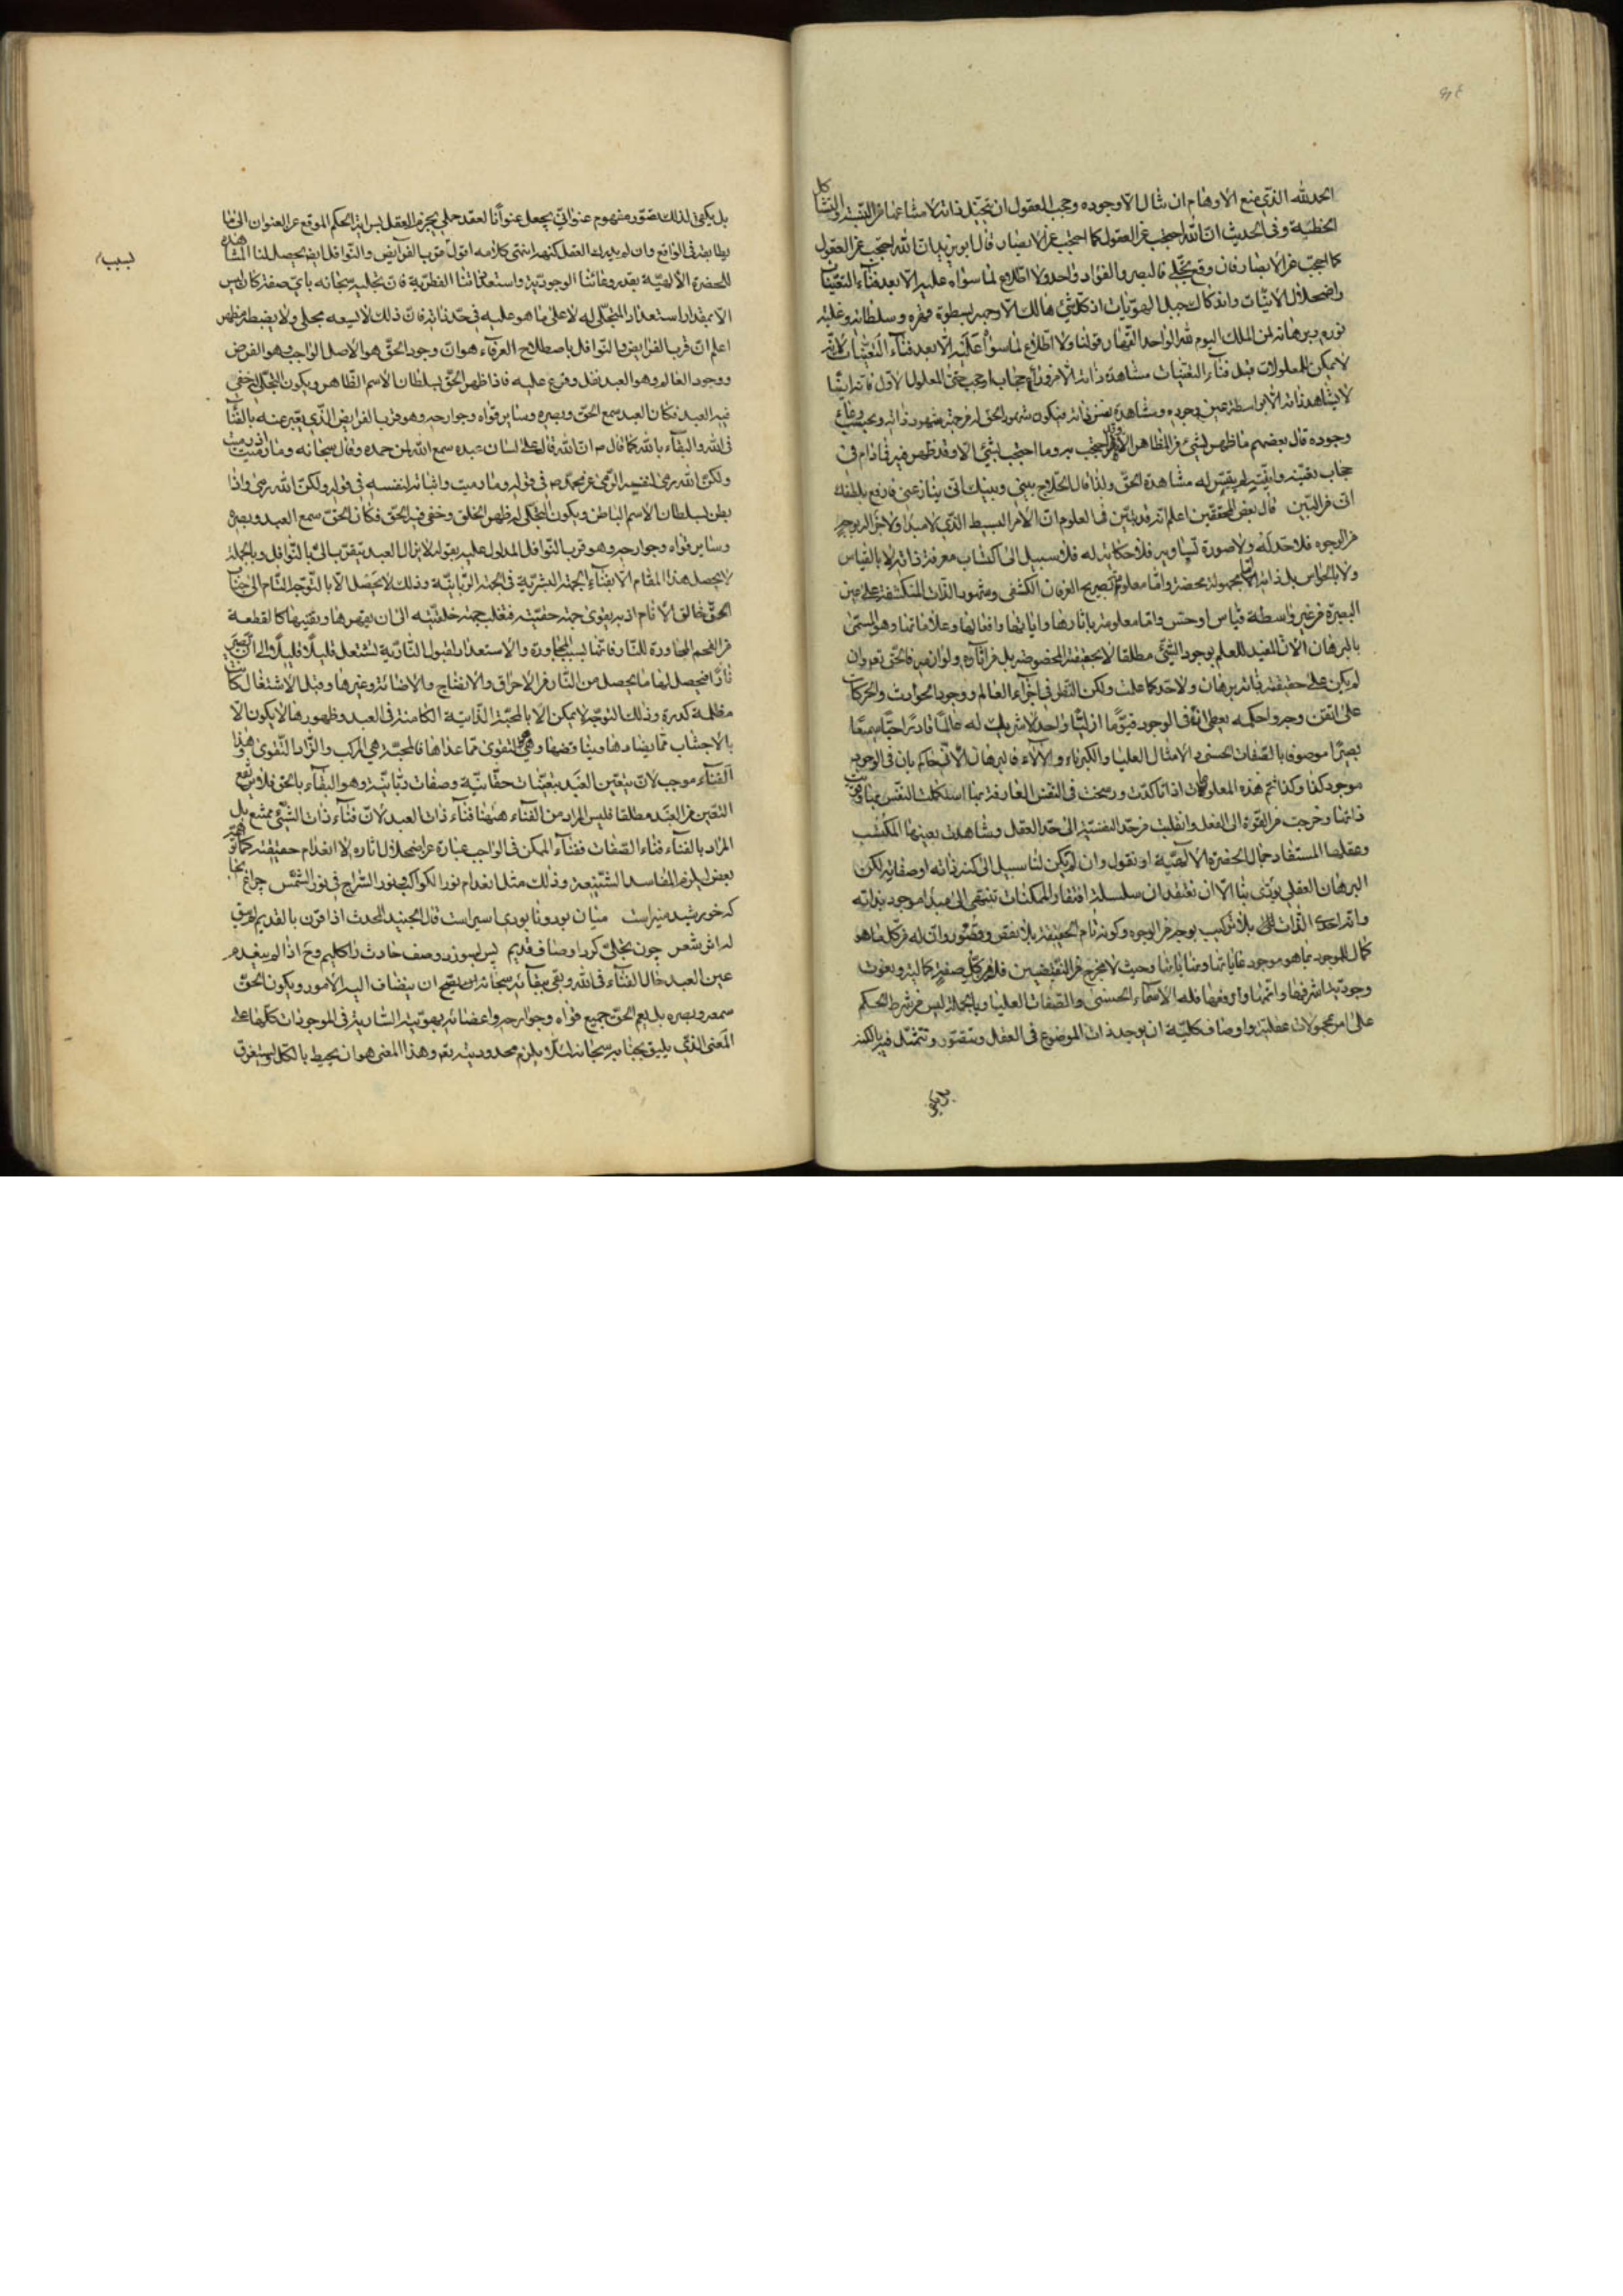 الحمد لله الذى منع الاوهام ان تنال الا وجوده وحجب العقول ان تتخيل ذاته لامتناعها من الشبه والتشاكل
الخطبة وفى الحديث ان الله احتجب عن العقول كما احتجب عن الابصار قال ابو يزيد ان الله احتجب عن العقول
كما احتجب عن الابصار فان وقع تجلى فالبصر والفؤاد واحد ولا اطلاع لما سواه عليه الا بعد فناء التعينات
واضمحلال الانيات واندكاك جبل الهويات اذ كل شئ هالك الا وجهه بسطوة قهره وسلطانه وغلبة
نوره وبرهانه لمن الملك اليوم لله الواحد القهار قولنا ولا اطلاع لما سواه عليه الا بعد فناء التعينات لانه
لا يمكن للمعلولات قبل فناء التعينات مشاهدة ذاته الا من وراء حجاب او حجب حتى المعلول الاول فانه ايضا
لا يشاهد ذاته الا بواسطة عين وجوده ومشاهدة نفس ذاته فيكون شهود الحق له من جهة شهود ذاته وبحسب وعاء
وجوده قال بعضهم ما ظهر لشئ من المظاهر الا وقد احتجب به وما احتجب بشئ الا وقد ظهر فيه فما دام فى
حجاب تعينه وانيته لم يتيسر له مشاهدة الحق ولذا قال الحلاج بينى وبينك انى ينازعنى فارفع بلطفك
انى من البين قال بعض المحققين اعلم انه قد تبين فى العلوم ان الامر البسيط الذى لا مبدأ ولا جزء له بوجه
من الوجوه فلا حد له ولا صورة تساويه فلا حكاية له فلا سبيل الى اكتساب معرفة ذاته لا بالقياس
ولا بالحواس بل ذاته اما مجهولة محضة واما معلومة بصريح العرفان الكشفى وشهود الذات المنكشفة على عين
البصيرة من غير واسطة قياس او حس واما معلومة باثارها واياتها وافعالها وعلاماتها وهو المسمى
بالبرهان الان المفيد للعلم بوجود الشئ مطلقا لا بحقيقته المخصوصة بل من اثاره ولوازمه فالحق تعالى وان
لم يكن على حقيقة ذاته برهان ولا حد كما علمت ولكن النظر فى اجزاء العالم ووجود الحوادث والحركات
على اتقن وجه واحكمه يعطى ان فى الوجود قيوما ازليا واحدا لا شريك له عالما قادرا حيا سميعا
بصيرا موصوفا بالصفات الحسنى والامثال العليا والكبرياء والالاء فالبرهان الانى حاكم بان فى الوجود
موجود كذا وكذا ثم هذه المعلومات اذا تاكدت ورسخت فى النفس العارفة بها استكملت النفس بها وقويت
ذاتها وخرجت من القوة الى الفعل وانقلبت من حد النفسية الى حد العقل وشاهدت بعينها المكتسب
وعقلها المستفاد جمال الحضرة الالهية او نقول وان لم يكن لنا سبيل الى كنه ذاته او صفاته لكن
البرهان العقلى يؤدى بنا الى ان نعتقد ان سلسلة افتقار الممكنات تنتهى الى مبدأ موجود بذاته
وانه احدى الذات بلا تركيب بوجه من الوجوه وكونه تام الحقيقة بلا نقص وقصور وان له من كل ما هو
كمال للموجود بما هو موجود غاياتها ونهاياتها وحيث لا مخرج من النقيضين فله من كل صفة كمالية ونعوت
وجودية اشرفها واتمها وارفعها فله الاسماء الحسنى والصفات العليا وبالجملة ليس من شرط الحكم
على امر بمحمولات عقلية واوصاف كلية ان يوجد ذات الموضوع فى العقل ويتصور ويتمثل فيه بالكنه
بل يكفى
بل يكفى لذلك تصور مفهوم عنوانى يجعل عنوانا لعقد حملى يجزم العقل بسراية الحكم الموقع على العنوان الى ما
يطابقه فى الواقع وان لم يدرك العقل كنهه انتهى كلامه اقول قرب الفرائض والنوافل ايضا يحصل لنا هذه المشاهدة
للحضرة الالهية بقدر وعائنا الوجودية واستعداداتنا الفطرية فان تجليه سبحانه باى صفة كان ليس
الا بمقدار استعداد المتجلى له لا على ما هو عليه فى حد ذاته فان ذلك لا يسعه مجلى ولا يضبطه مظهر
اعلم ان قرب الفرايض والنوافل باصطلاح العرفاء هو ان وجود الحق هو الاصل الواجب وهو الفرض
ووجود العالم وهو العبد نفل وفرع عليه فاذا ظهر الحق بسلطان الاسم الظاهر ويكون المتجلى له خفى
فيه العبد فكان العبد سمع الحق وبصره وساير قواه وجوارحه وهو قرب الفرايض الذى يعبر عنه بالفناء
فى الله والبقاء بالله كما قال ص ان الله قال على لسان عبده سمع الله لمن حمده وقال سبحانه وما رميت اذ رميت
ولكن الله رمى فى قوله وما رميت واثباته لنفسه فى قوله ولكن الله رمى واذا
بطن بسلطان الاسم الباطن ويكون المتجلى له ظهر الخلق وخفى فيه الحق فكان الحق سمع العبد وبصره
وساير قواه وجوارحه وهو قرب النوافل المدلول عليه بقوله لا يزال العبد يتقرب الى بالنوافل وبالجملة
لا يحصل هذا المقام الا بفناء الجهة البشرية فى الجهة الربانية وذلك لا يحصل الا بالتوجه التام الى جناب
الحق خالق الانام اذ به يقوى جهة حقيته فتغلب جهة خلقيته الى ان يقهرها ويفنيها كالقطعة
من الفحم المجاورة للنار فانها بسبب المجاورة والاستعداد لقبول النارية تشتعل قليلا قليلا الى ان تصير
نارا فيحصل لها ما يحصل من النار من الاحراق والانضاج والاضائة وغيرها وقبل الاشتغال كانت
مظلمة كدرة وذلك التوجه لا يمكن الا بالمحبة الذاتية الكامنة فى العبد وظهورها لا يكون الا
بالاجتناب مما يضادها ويناقضها وهى التقوى مما عداها فالمحبة هى المركب والزاد التقوى هذا
الفناء موجب لان يتعين العبد بتعينات حقانية وصفات ربانية وهو البقاء بالحق فلا يرتفع
التعين من العبد مطلقا فليس المراد من الفناء ههنا فناء ذات العبد لان فناء ذات الشئ ممتنع بل
المراد بالفناء فناء الصفات ففناء الممكن فى الواجب عبارة عن اضمحلال اثاره لا انعدام حقيقته كما توهم
بعض ليلزم المفاسد الشنيعة وذلك مثل انعدام نور الكواكب ونور السراج فى نور الشمس چراغ آنجا
كه خورشيد منير است ميان بود و نابودى اسير است قال الجنيد المحدث اذا قورن بالقديم لم يبق
له اثر شعر چون تجلى كرد اوصاف قديم پس بسوزد وصف حادث را كليم وح اذا لم ينعدم
عين العبد حال الفناء فى الله وبقى ببقائه سبحانه يصح ان يضاف اليه الامور ويكون الحق
سمعه وبصره بل يعم الحق جميع قواه وجوارحه واعضائه بهويته السارية فى الموجودات كلها على
المعنى الذى يليق بجنابه سبحانه لئلا يلزم محدوديته تعالى وهذا المعنى هو ان يحيط بالكل ويستغرق